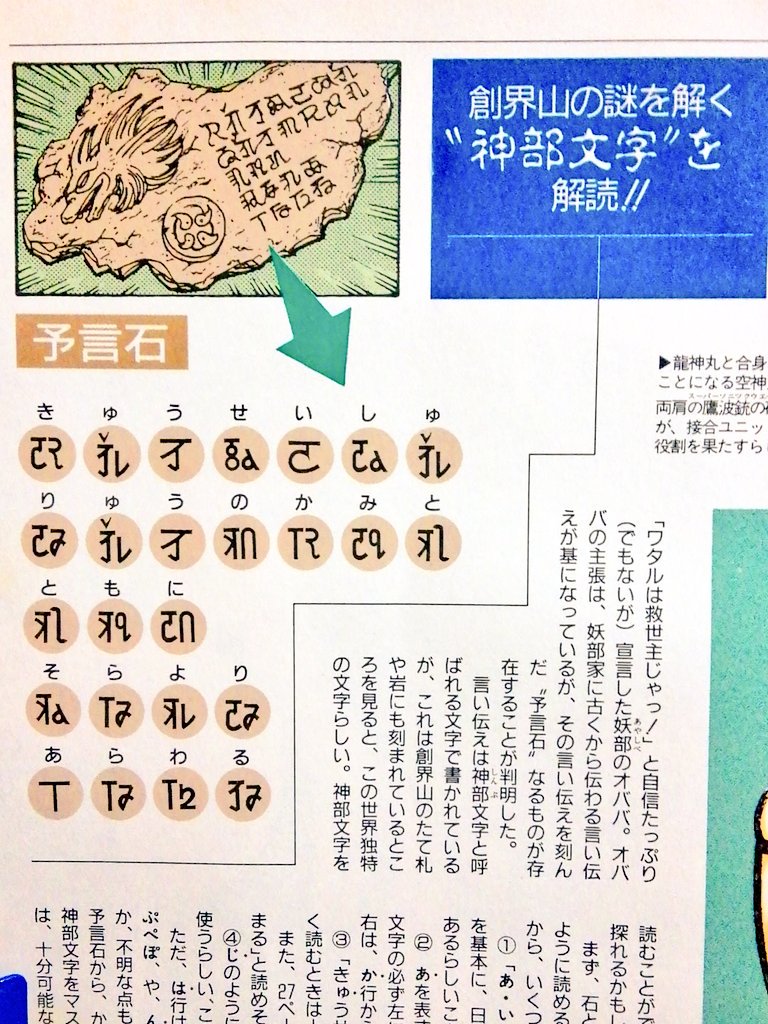 創界山の謎を解く
"神部文字"を
解読!!
予言石
きゅうせいしゅ
りゅうのかみと
ともに
そらより
あらわる
▶龍神丸と合身
ことになる空神
スーパーソニックウエ
両肩の鷹波銃の
が、接合ユニッ
役割を果たすら
「ワタルは救世主じゃっ!」と自信たっぷり
(でもないが)宣言した妖部のオババ。オバ
あやしべ
バの主張は、妖部家に古くから伝わる言い伝
えが基になっているが、その言い伝えを刻ん
だ〝予言石〟なるものが存
在することが判明した。
言い伝えは神部文字と呼
しんぶ
ばれる文字で書かれている
が、これは創界山のたて札
や岩にも刻まれているとこ
ろを見ると、この世界独特
の文字らしい。神部文字を
読むことがで
探れるかもし
まず、石と
ように読める
から、いくつ
①「あ・い
を基本に、日
あるらしいこ
②あを表す
文字の必ず左に
右は、か行から
③「きゅうせ
く読むときは
また、27ペー
まる」と読めそ
④じのように
使うらしい、こ
ただ、は行け
ぷぺぽ、や、ん
か、不明な点も
予言石から、か
神部文字をマス
は、十分可能な